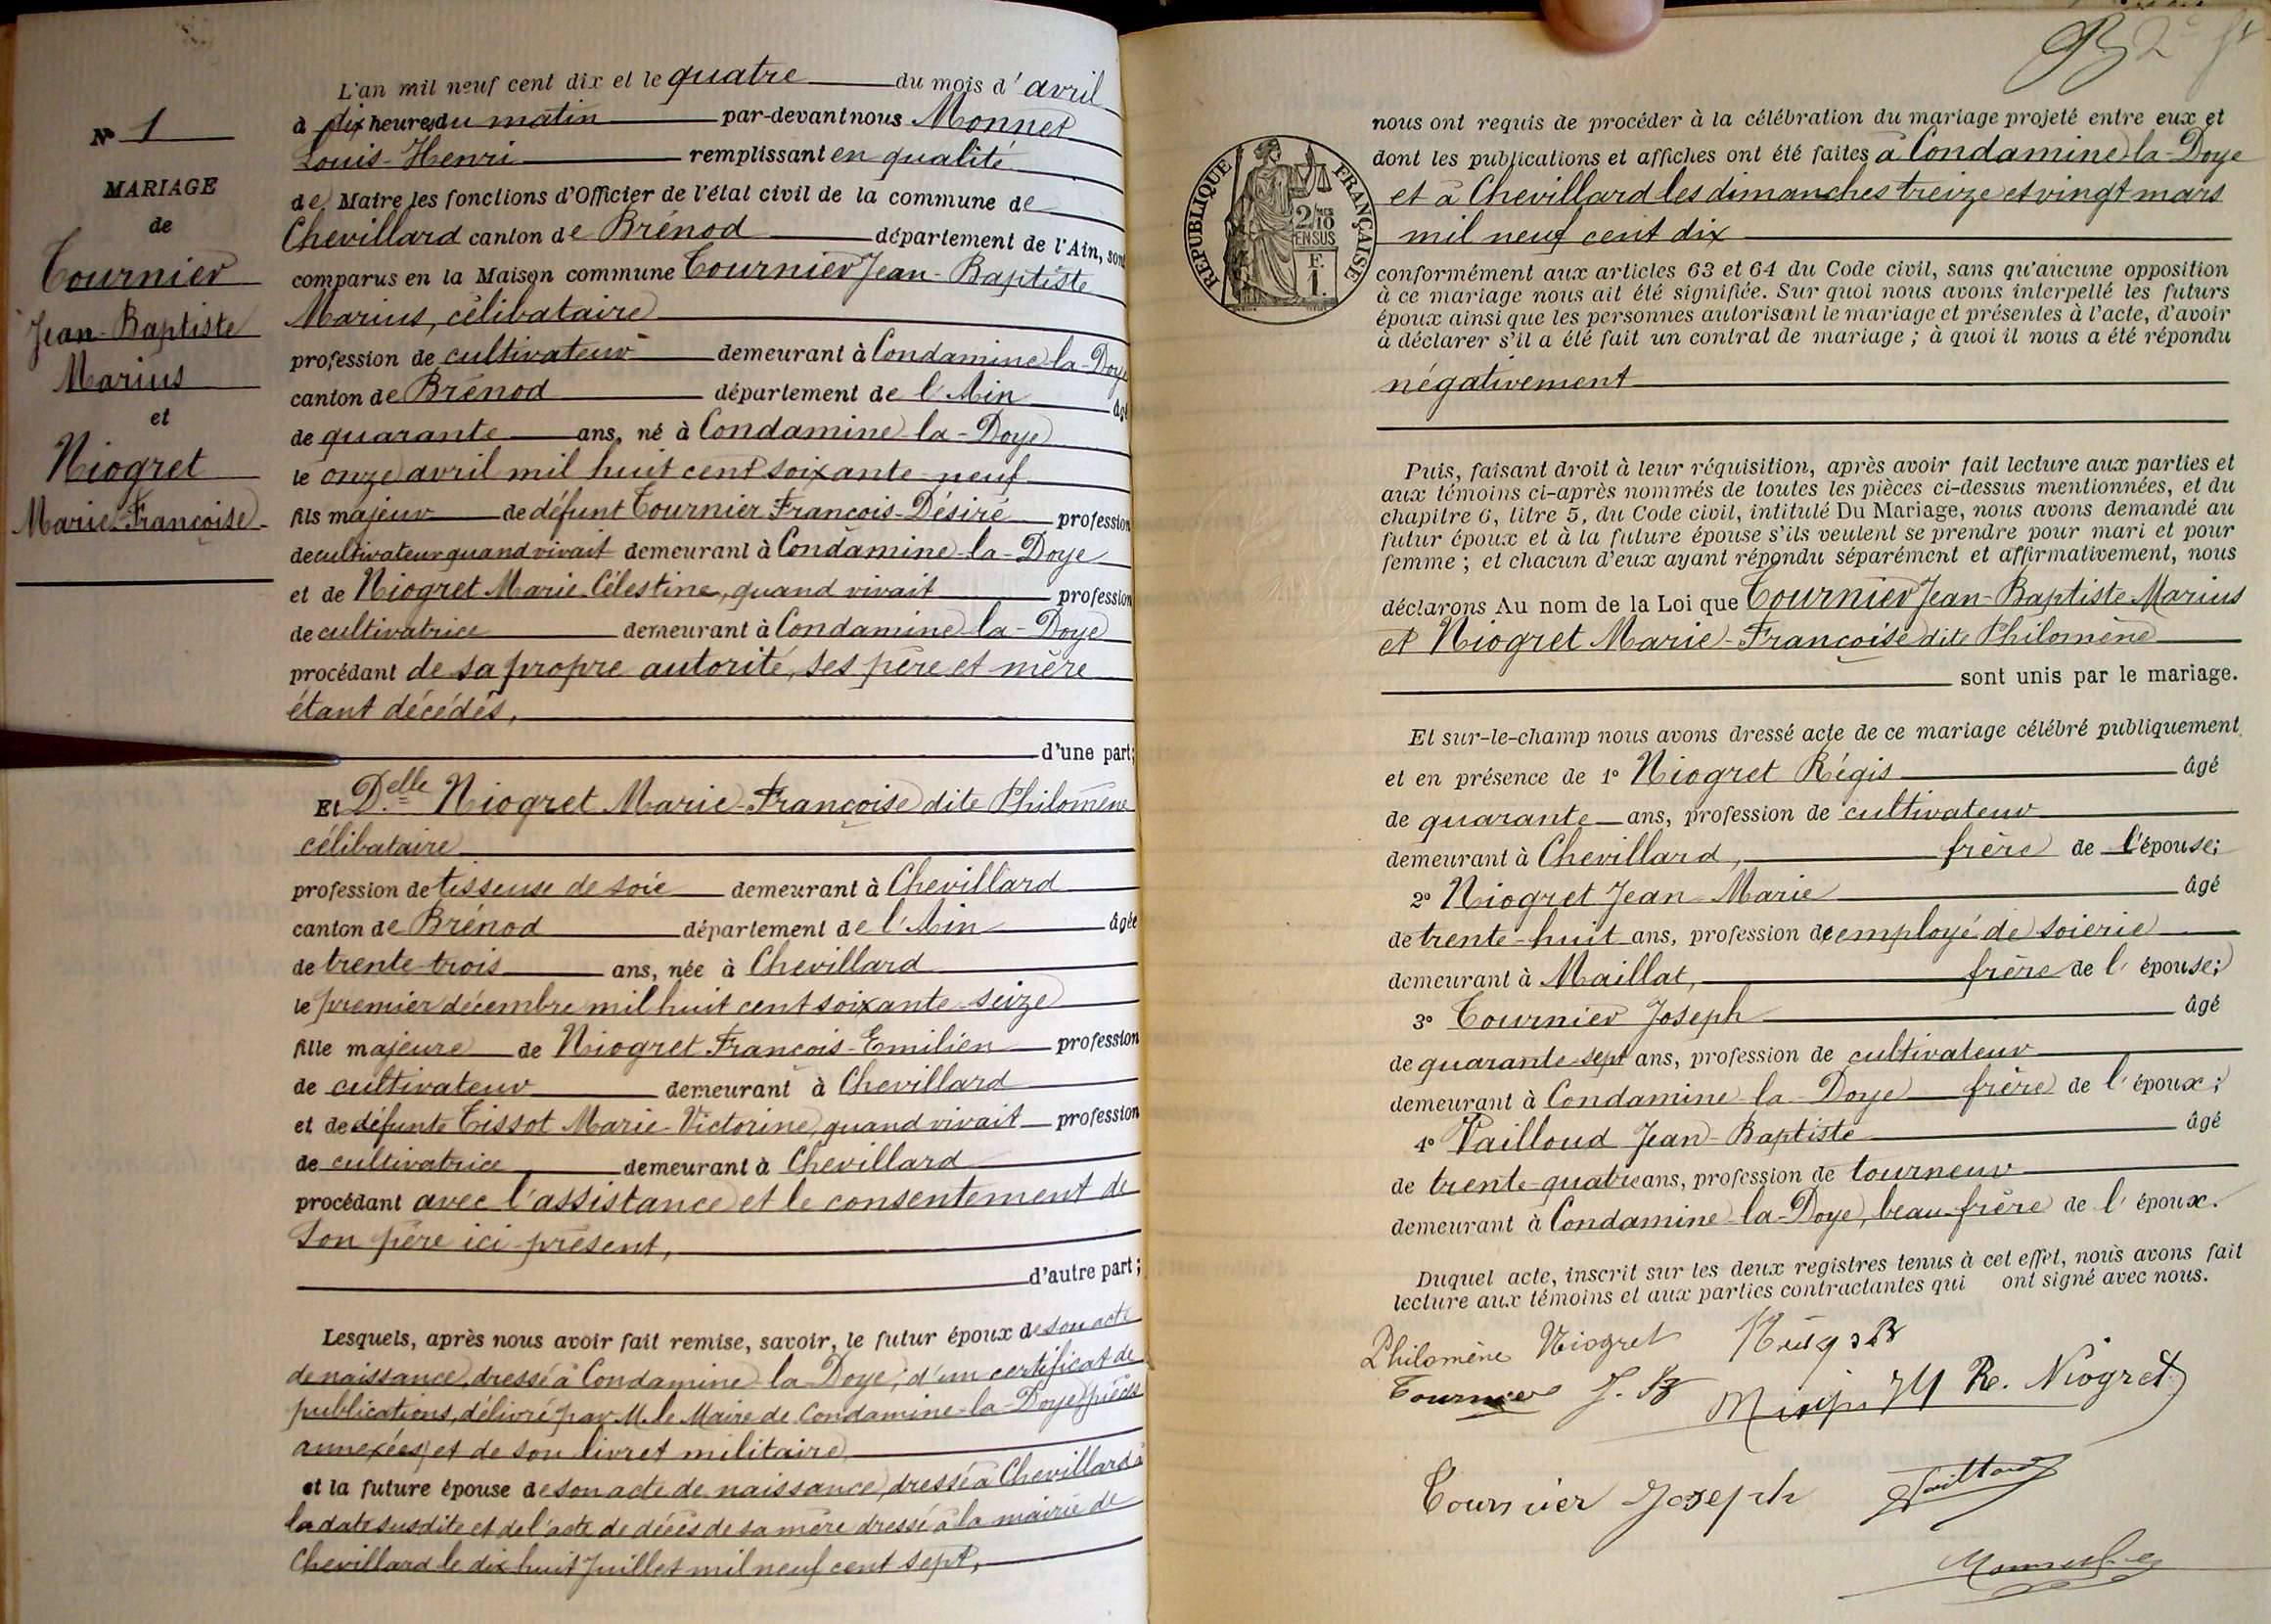 N° 1
MARIAGE
de
Tournier
Jean-Baptiste
Marius
et
Niogret
Marie-Françoise
L'an mil neuf cent dix et le quatre du mois d'avril
à dix heures du matin par-devant nous Monnet
Louis-Henri remplissant en qualité
de Maire les fonctions d'Officier de l'état civil de la commune de
Chevillard canton de Brénod département de l'Ain, sont
comparus en la Maison commune Tournier Jean-Baptiste
Marius, célibataire
profession de cultivateur demeurant à Condamine-la-Doye
canton de Brénod département de l'Ain âgé
de quarante ans, né à Condamine-la-Doye
le onze avril mil huit cent soixante-neuf
fils majeur de défunt Tournier François-Désiré profession
de cultivateur quand vivait demeurant à Condamine-la-Doye
et de Niogret Marie Célestine, quand vivait profession
de cultivatrice demeurant à Condamine-la-Doye
procédant de sa propre autorité, ses père et mère
étant décédés,
d'une part;
Et Delle Niogret Marie-Françoise dite Philomène
célibataire
profession de tisseuse de soie demeurant à Chevillard
canton de Brénod département de l'Ain âgée
de trente-trois ans, née à Chevillard
le premier décembre mil huit cent soixante-seize
fille majeure de Niogret François-Emilien profession
de cultivateur demeurant à Chevillard
et de défunte Tissot Marie-Victorine, quand vivait profession
de cultivatrice demeurant à Chevillard
procédant avec l'assistance et le consentement de
son père ici présent,
d'autre part;
Lesquels, après nous avoir fait remise, savoir, le futur époux de son acte
de naissance, dressé à Condamine-la-Doye; d'un certificat de
publications, délivré par M. le Maire de Condamine-la-Doye (pièces
annexées) et de son livret militaire
et la future épouse de son acte de naissance, dressé à Chevillard à
la date susdite et de l'acte de décès de sa mère dressé à la mairie de
Chevillard le dix huit Juillet mil neuf cent sept,
REPUBLIQUE FRANÇAISE
2/10
EN SUS
F.
1.
nous ont requis de procéder à la célébration du mariage projeté entre eux et
dont les publications et affiches ont été faites à Condamine-la-Doye
et à Chevillard les dimanches treize et vingt mars
mil neuf cent dix
conformément aux articles 63 et 64 du Code civil, sans qu'aucune opposition
à ce mariage nous ait été signifiée. Sur quoi nous avons interpellé les futurs
époux ainsi que les personnes autorisant le mariage et présentes à l'acte, d'avoir
à déclarer s'il a été fait un contrat de mariage; à quoi il nous a été répondu
négativement
Puis, faisant droit à leur réquisition, après avoir fait lecture aux parties et
aux témoins ci-après nommés de toutes les pièces ci-dessus mentionnées, et du
chapitre 6, titre 5, du Code civil, intitulé Du Mariage, nous avons demandé au
futur époux et à la future épouse s'ils veulent se prendre pour mari et pour
femme; et chacun d'eux ayant répondu séparément et affirmativement, nous
déclarons Au nom de la Loi que Tournier Jean-Baptiste Marius
et Niogret Marie-Françoise dite Philomène
sont unis par le mariage.
Et sur-le-champ nous avons dressé acte de ce mariage célébré publiquement
et en présence de 1° Niogret Régis âgé
de quarante ans, profession de cultivateur
demeurant à Chevillard, frère de l'épouse;
2° Niogret Jean-Marie âgé
de trente-huit ans, profession de employé de soierie
demeurant à Maillat, frère de l'épouse;
3° Tournier Joseph âgé
de quarante-sept ans, profession de cultivateur
demeurant à Condamine-la-Doye frère de l'époux;
4° Vailloud Jean-Baptiste âgé
de trente-quatre ans, profession de tourneur
demeurant à Condamine-la-Doye, beau-frère de l'époux.
Duquel acte, inscrit sur les deux registres tenus à cet effet, nous avons fait
lecture aux témoins et aux parties contractantes qui ont signé avec nous.
Philomène Niogret
Tournier J. B
Re. Niogret
Tournier Joseph